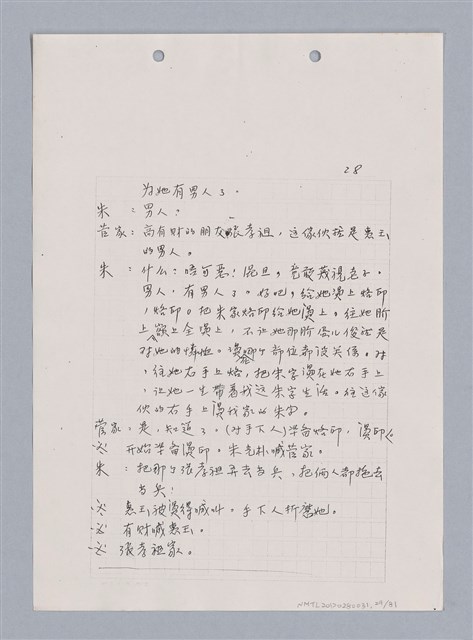 28
为她有男人了。
朱：男人？
管家：高有财的朋友张孝祖，这傢伙按是惠玉
的男人。
朱：什么！唔可恶！混旦，竟敢藐視老子。
男人，有男人了。好吧，给她烫上烙印
，烙印。把朱家烙印给她烫上。往她脸
上额上全烫上，不让她那脸
对她的憐惜。烫哪个部位都没关係。对
，往她右手上烙，把朱字烫在她右手上
，让她一生帶着我这朱字生活。往这傢
伙的右手上烫我家的朱字。
管家：是，知道了。(对手下人)準备烙印，烫印。
※ 开始準备烫印。朱先朴喊管家。
朱：把那个张孝祖弄去当兵，把俩人都拖去
当兵！
※ 惠玉被烫得喊叫。手下人折磨她。
※ 有财喊惠玉。
※ 张孝祖家。
NMTL20070280031, 29/31